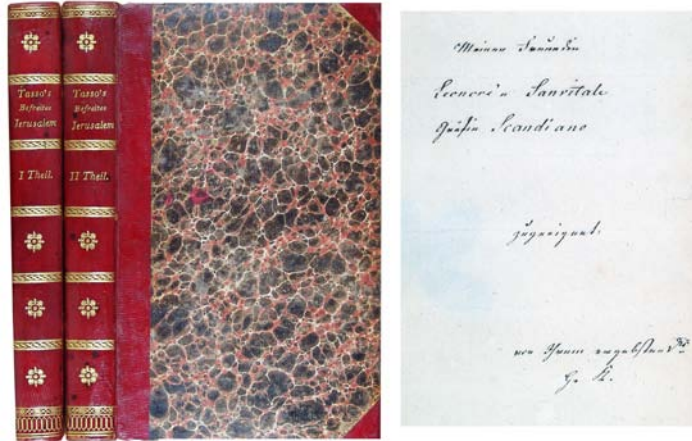 Tasso's
Befreites
Jerusalem
I Theil.
Tasso's
Befreites
Jerusalem
II Theil.
Meiner Freundin
Leonore Sanvitale
Gräfin Scandiano
zugeeignet.
von Ihrem ergebensten